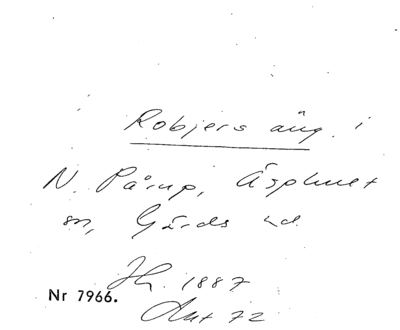 Robjers äng i
N. Pårup, Äsphult
sn, Gärds hd.
1887
Nr 7966.
Ant 72